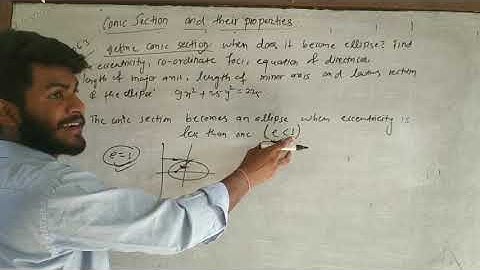 Conic Section and their properties
define conic section when does it become ellipse? Find
eccentricity, co-ordinate foci, equation of directrix
length of major axis, length of minor axis and
the ellipse 9x² + 25y² = 225
The conic section becomes an ellipse when eccentricity is
less than one (e<1)
e=1